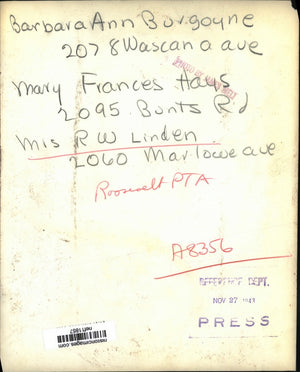 Barbara Ann Burgoyne
2078 Wascana ave
Mary Frances Haus
2095 Bunts Rd
Mrs R W Linden
2060 Marlowe ave
Roosevelt PTA
A8356
REFERENCE DEPT.
NOV 27 1943
PRESS
nef11857
resstonimages.com